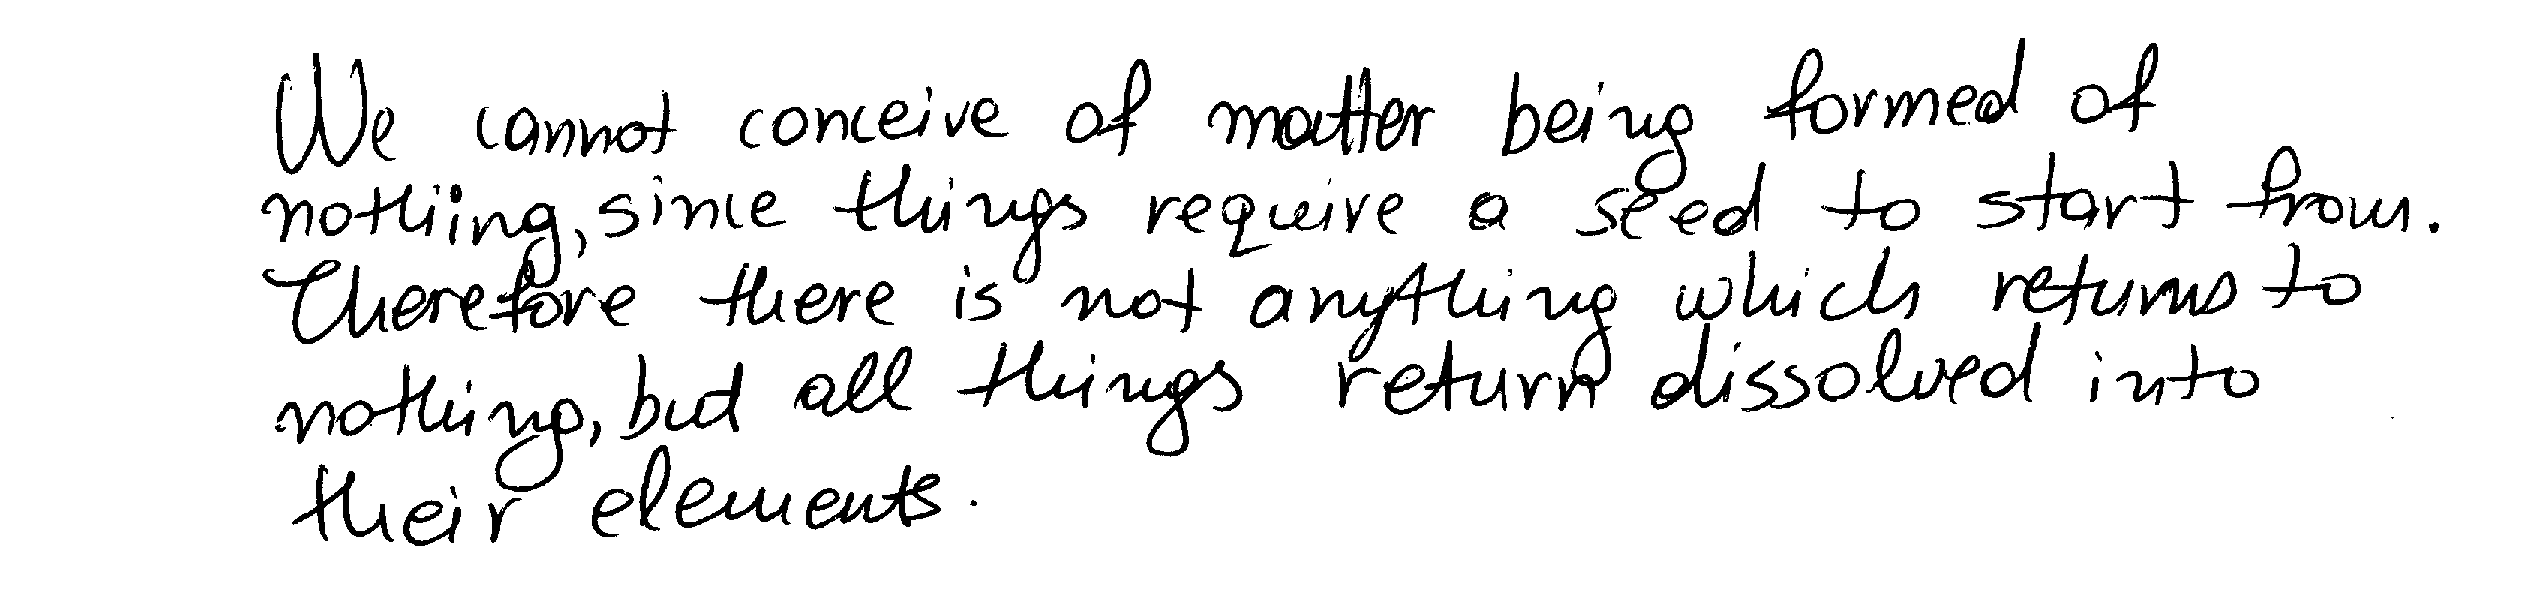 We cannot conceive of matter being formed of
nothing, since things require a seed to start from.
Therefore there is not anything which returns to
nothing, but all things return dissolved into
their elements.